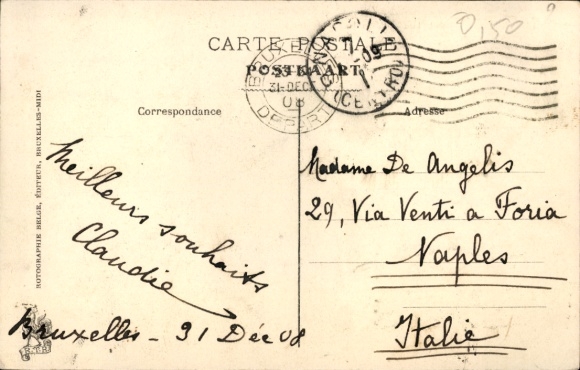 0,50
CARTE POSTALE
POSTKAART
BRUXELLES
31 DEC
08
DEPART
NAPOLI
(CENTRO)
Correspondance
Adresse
ROTOGRAPHIE BELGE, ÉDITEUR, BRUXELLES-MIDI
Meilleurs souhaits
Claudie
Bruxelles - 31 Déc 08
Madame De Angelis
29, Via Venti a Foria
Naples
Italie